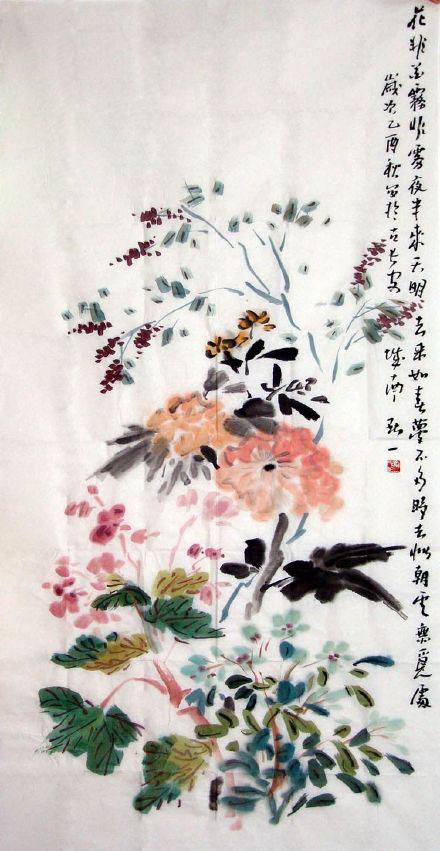 花非花霧非霧夜半來天明去來如春夢不多時去似朝雲無覓處
歲次乙酉秋寫於古長安